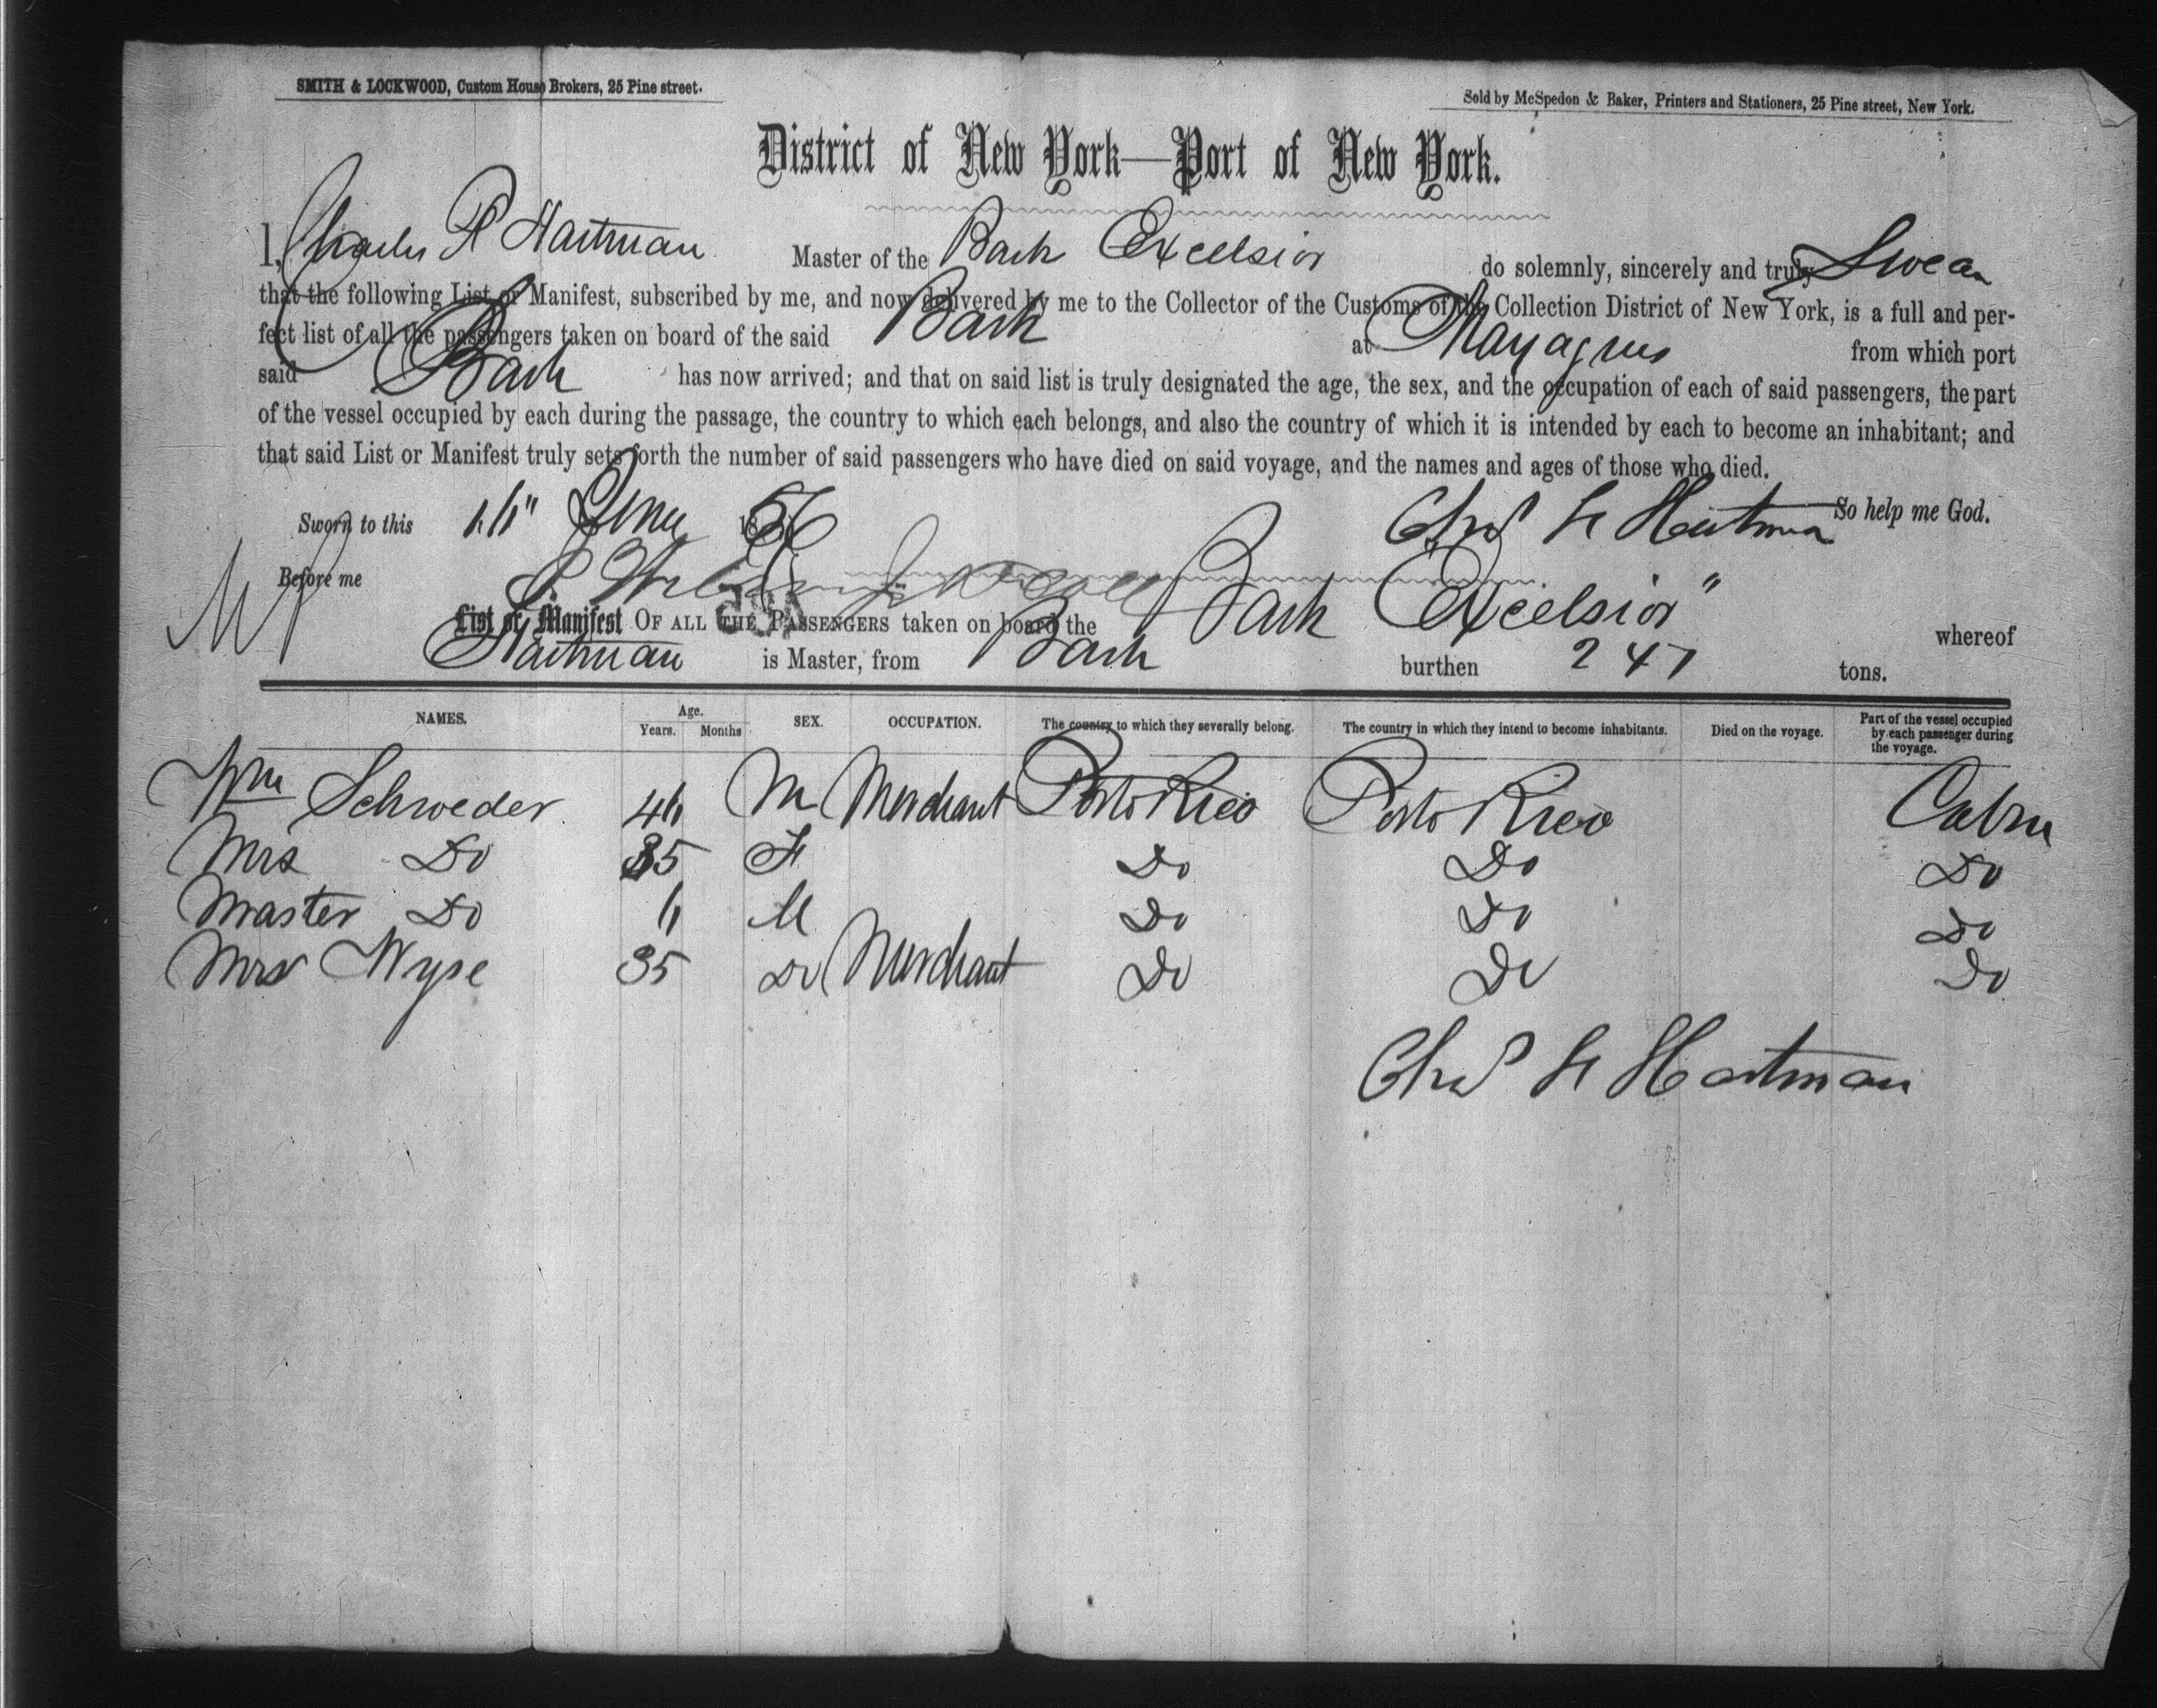 SMITH & LOCKWOOD, Custom House Brokers, 25 Pine street.
Sold by McSpedon & Baker, Printers and Stationers, 25 Pine street, New York.
District of New York—Port of New York.
I, Charles P Hartman Master of the Bark Excelsior do solemnly, sincerely and truly Swear
that the following List or Manifest, subscribed by me, and now delivered by me to the Collector of the Customs of the Collection District of New York, is a full and per-
fect list of all the passengers taken on board of the said Bark at Mayagues from which port
said Bark has now arrived; and that on said list is truly designated the age, the sex, and the occupation of each of said passengers, the part
of the vessel occupied by each during the passage, the country to which each belongs, and also the country of which it is intended by each to become an inhabitant; and
that said List or Manifest truly sets forth the number of said passengers who have died on said voyage, and the names and ages of those who died.
So help me God.
Sworn to this 16" June 1856 Chas H Hartman
Before me
List or Manifest OF ALL THE PASSENGERS taken on board the Bark Excelsior" whereof
Hartman is Master, from Bark burthen 247 tons.
NAMES. Age. Years. Months SEX. OCCUPATION. The country to which they severally belong. The country in which they intend to become inhabitants. Died on the voyage. Part of the vessel occupied by each passenger during the voyage.
Wm Schroeder 46 M Merchant Porto Rico Porto Rico Cabin
Mrs Do 35 F Do Do Do
Master Do 6 M Do Do Do
Mrs Wyse 35 Do Merchant Do Do Do
Chas H Hartman